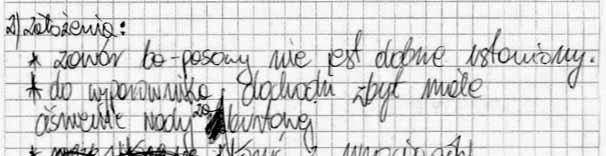 2) założenia:
* zawór bo-posowy nie jest dobrze ustawiony.
* do wyparownika dochodzi zbyt małe
ciśnienie wody
*